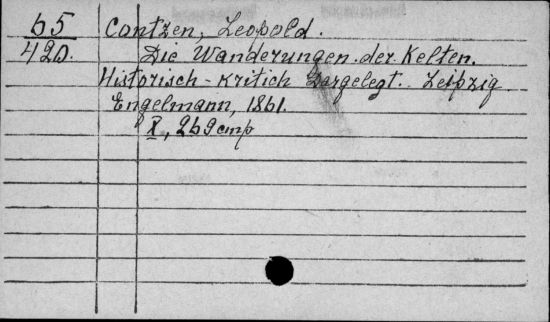 65 Contzen, Leopold.
420. Die Wanderungen der Kelten.
Historisch-kritich Dargelegt. Leipzig
Engelmann, 1861.
X, 269 cmp